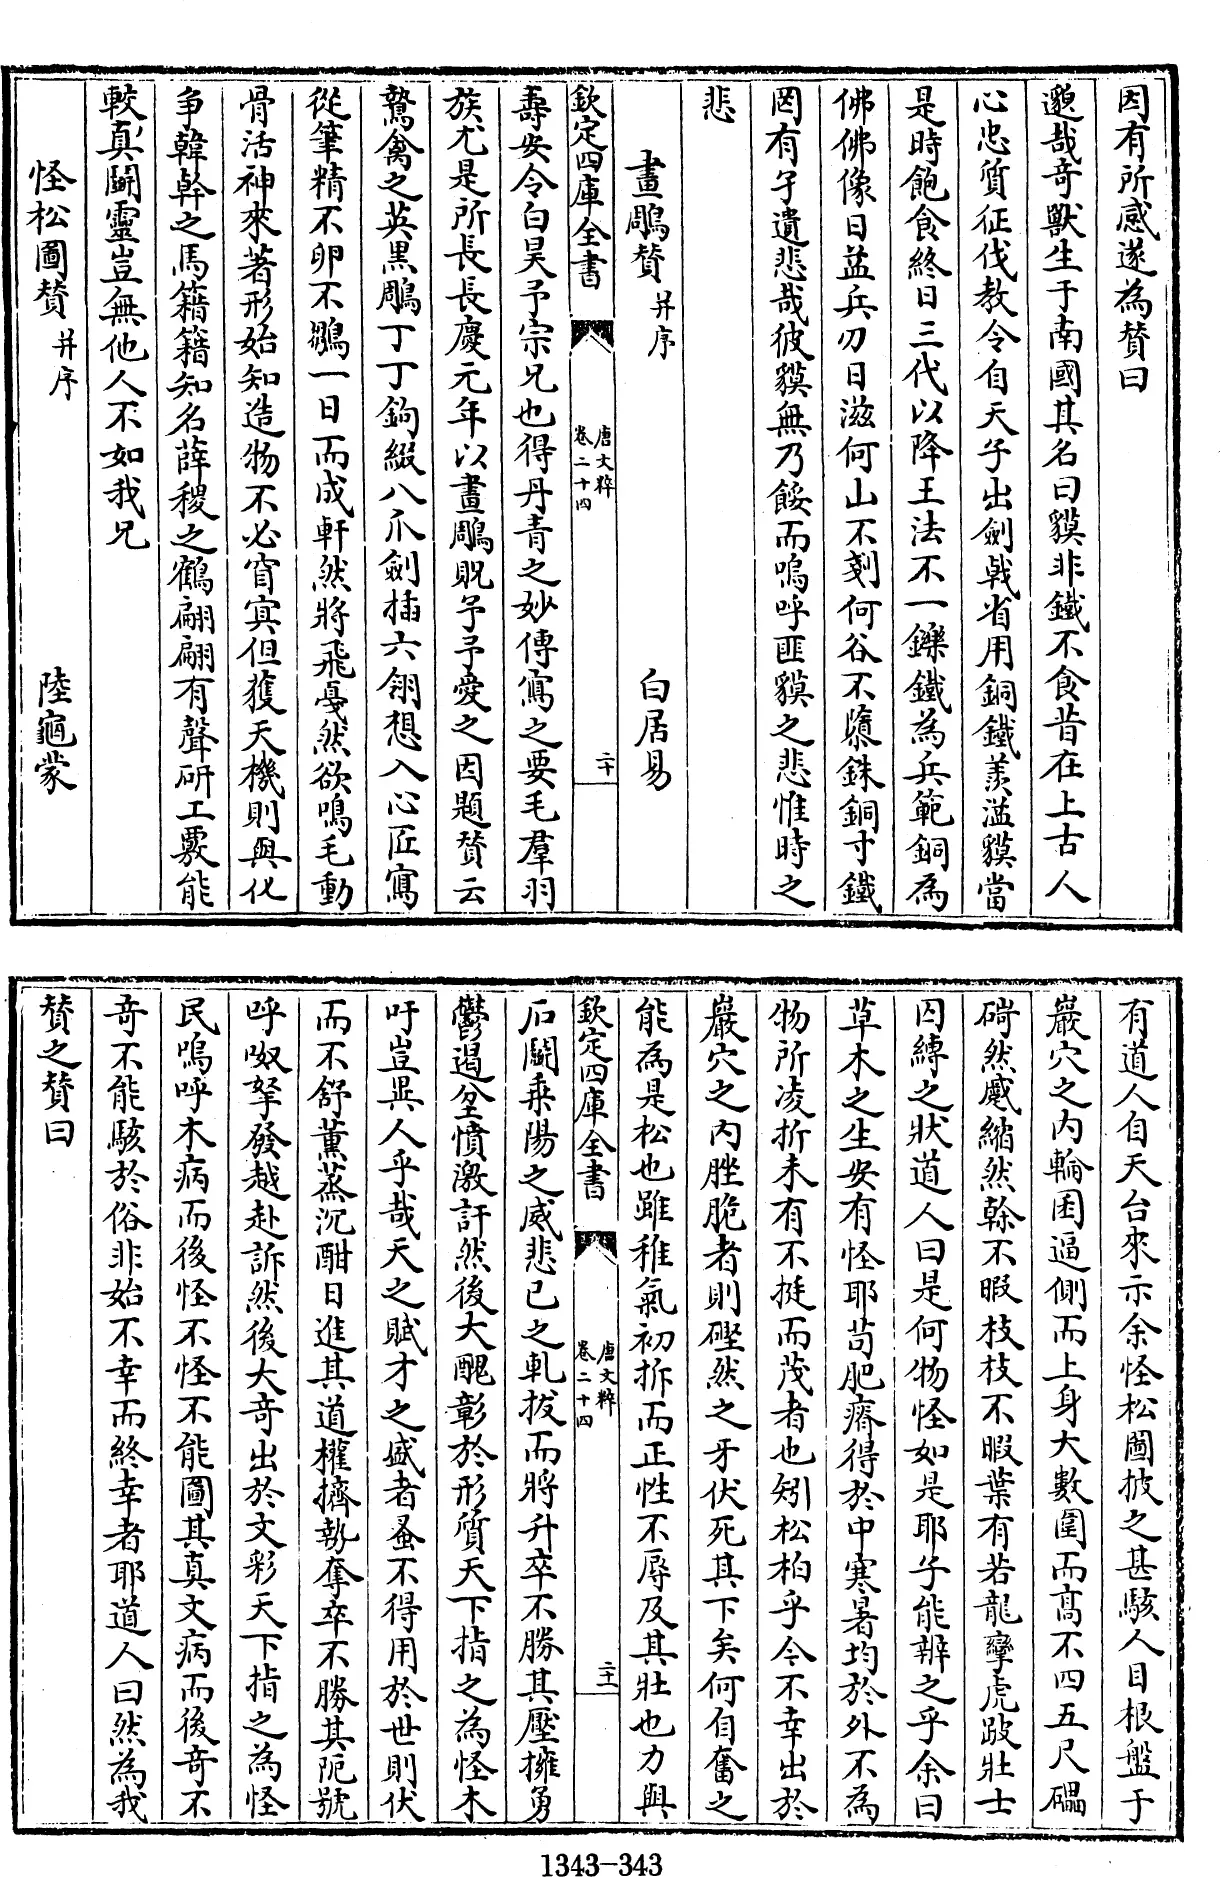 因有所感遂為賛曰
邈哉奇獸生于南國其名曰貘非鐵不食昔在上古人
心忠質征伐教令自天子出劍㦸省用銅鐵羡溢貘當
是時飽食終日三代以降王法不一鑠鐵為兵範銅為
佛佛像日益兵刃日滋何山不剗何谷不隳銖銅寸鐵
罔有孑遺悲哉彼貘無乃餒而嗚呼匪貘之悲惟時之
悲
畫鵰賛并序 白居易
欽定四庫全書 唐文粹 卷二十四 二十
壽安令白昊予宗兄也得丹青之妙傳寫之要毛羣羽
族尤是所長長慶元年以畫鵰貺予予愛之因題賛云
鷙禽之英黑鵰丁丁鉤綴八爪劍插六翎想入心匠寫
從筆精不卵不鶵一日而成軒然將飛戞然欲鳴毛動
骨活神來著形始知造物不必窅寘但獲天機則與化
争韓幹之馬籍籍知名薛稷之鶴翩翩有聲研工覈能
較真鬭靈豈無他人不如我兄
怪松圖賛并序 陸龜蒙
有道人自天台來示余怪松圖披之甚駭人目根盤于
巖穴之内輪囷逼側而上身大數圍而髙不四五尺礧
碕然蹙縮然榦不暇枝枝不暇葉有若龍攣虎跛壯士
囚縛之狀道人曰是何物怪如是耶子能辨之乎余曰
草木之生安有怪耶苟肥瘠得於中寒暑均於外不為
物所凌折未有不挺而茂者也矧松柏乎今不幸出於
巖穴之内脞脆者則磴然之牙伏死其下矣何自奮之
能為是松也雖稚氣初拆而正性不辱及其壯也力與
欽定四庫全書 唐文粹 卷二十四 二十一
石鬭乗陽之威悲已之軋拔而將升卒不勝其壓擁勇
鬱遏坌憤激訐然後大醜彰於形質天下指之為怪木
吁豈異人乎哉天之賦才之盛者蚤不得用於世則伏
而不舒薰蒸沉酣日進其道權擠勢奪卒不勝其阨號
呼呶拏發越赴訴然後大奇出於文彩天下指之為怪
民嗚呼木病而後怪不怪不能圖其真文病而後奇不
奇不能駭於俗非始不幸而終幸者耶道人曰然為我
賛之賛曰
1343-343